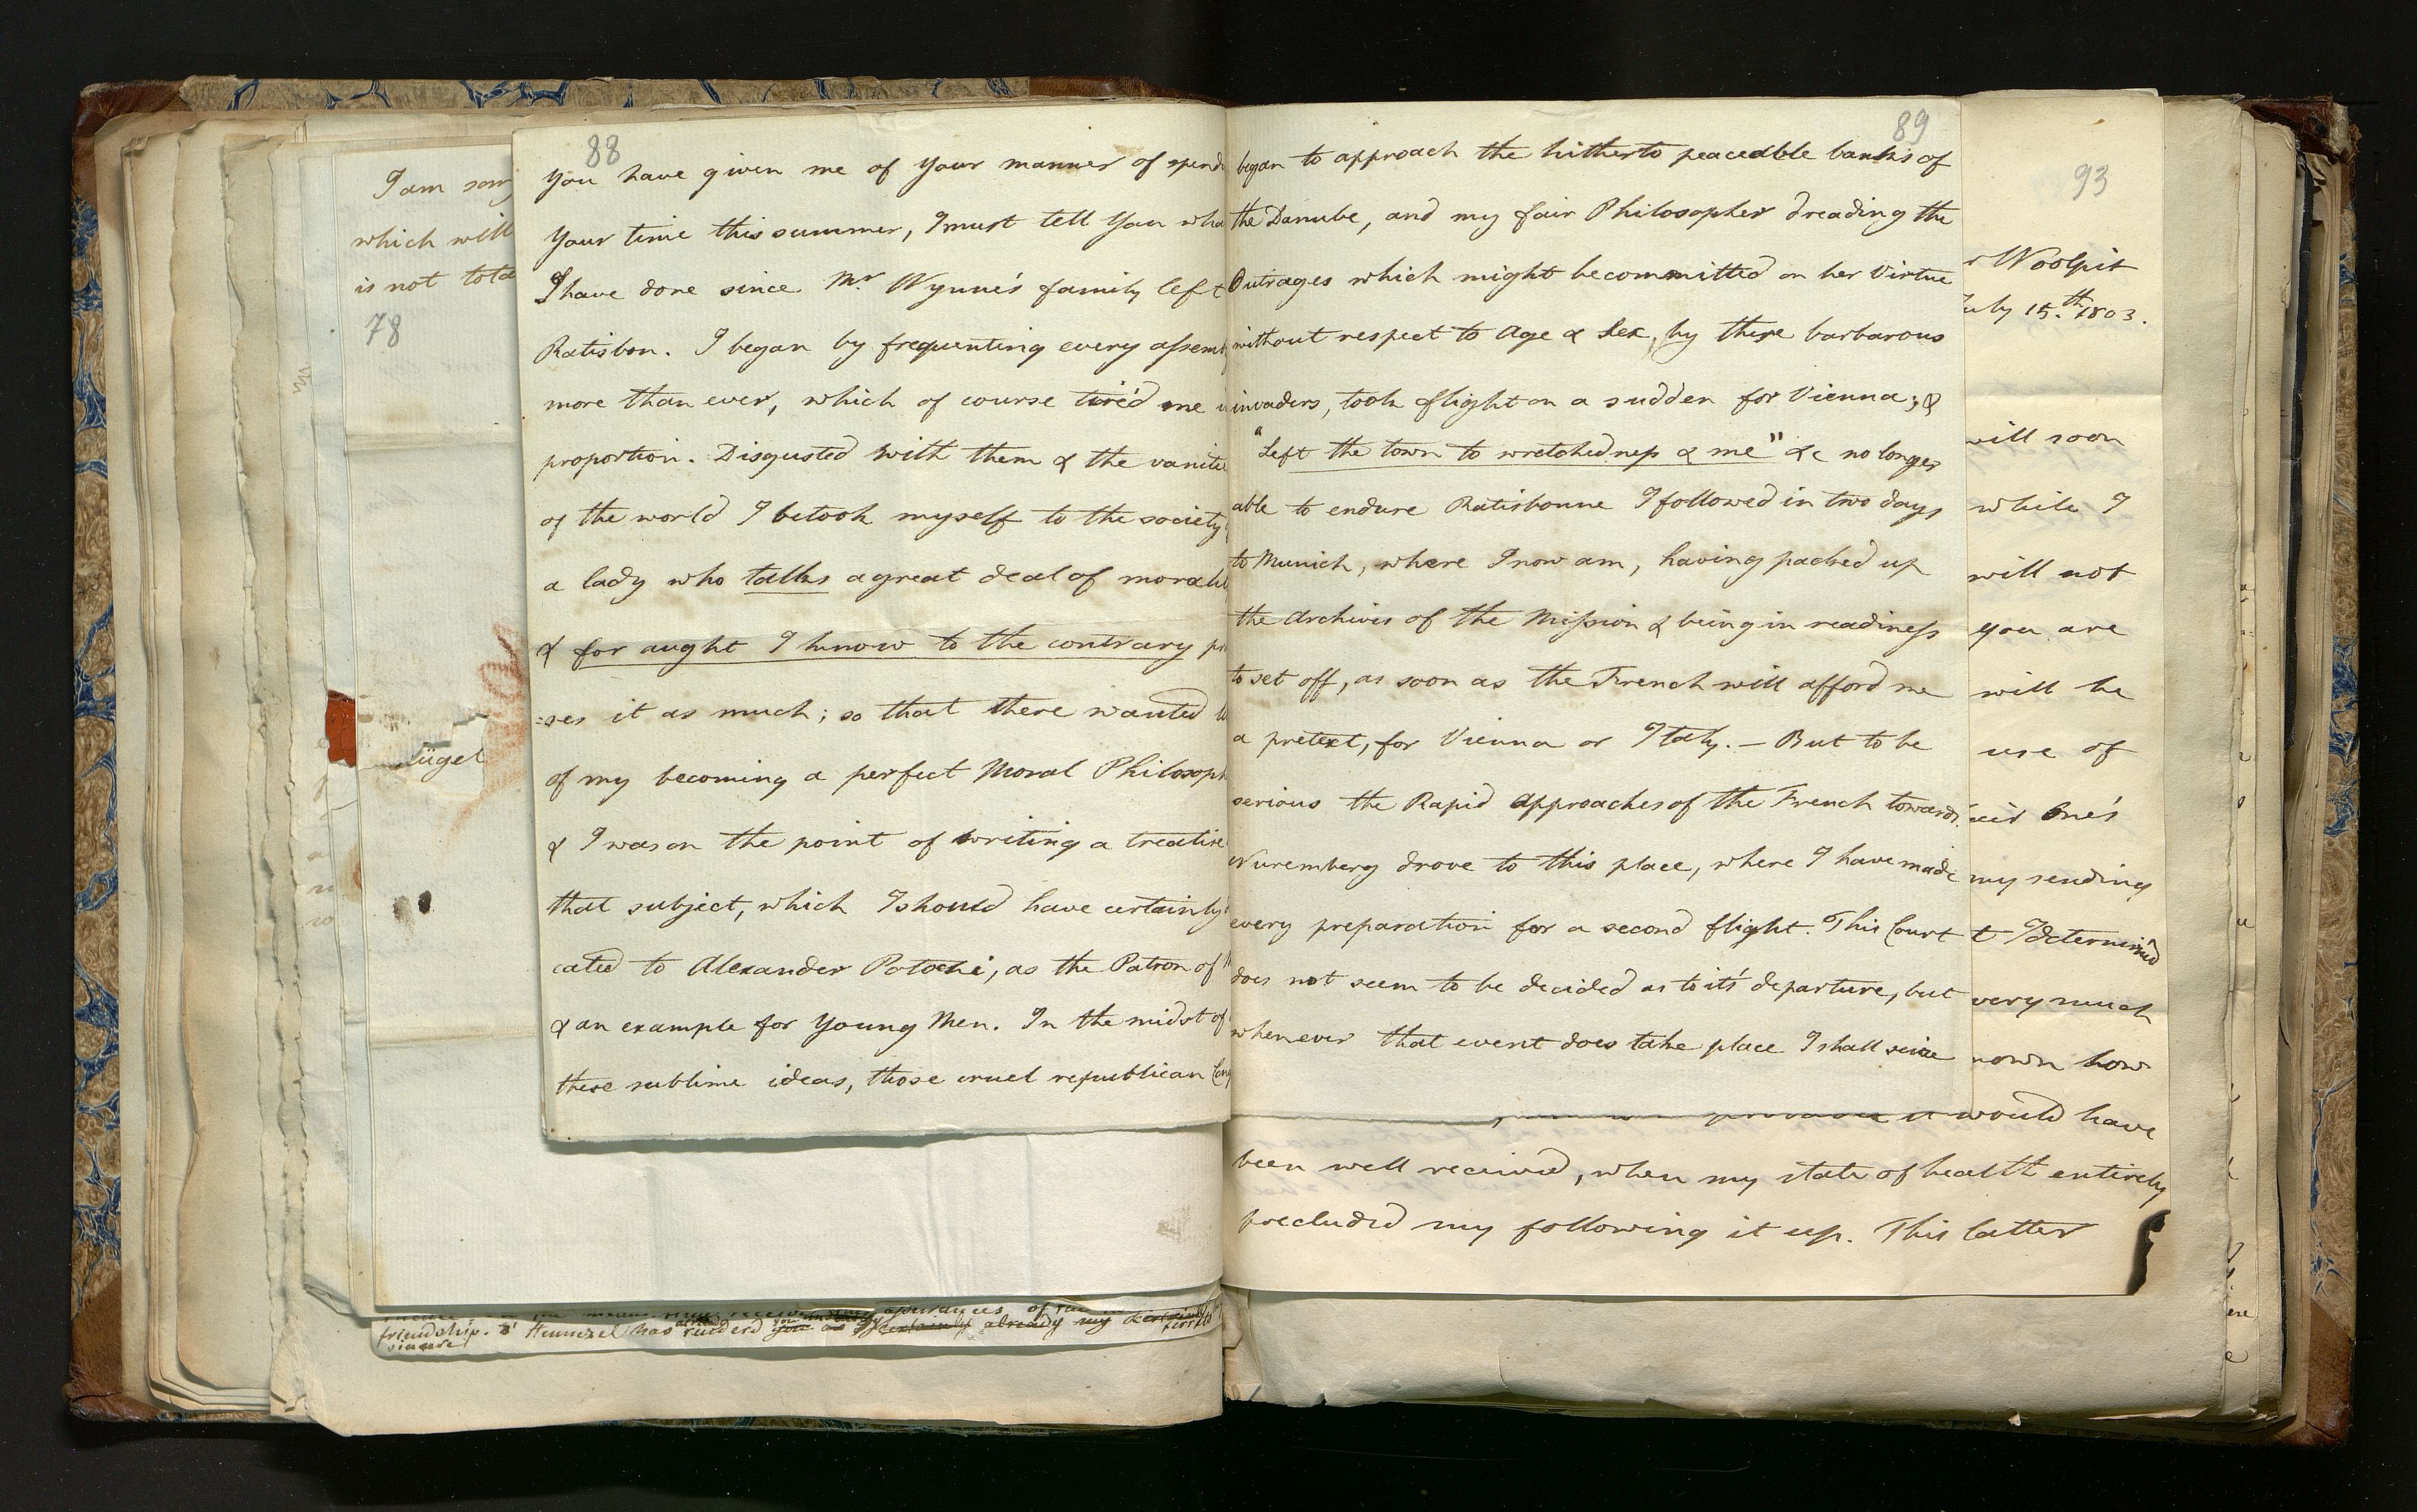 I am
which will
is not
78
ügel
friendship. Hennezel has
sincere
88
You have given me of your manner of spend
Your time this summer, I must tell You wha
I have done since Mr Wynne's family left
Ratisbon. I began by frequenting every assem
more than ever, which of course tired me
proportion. Disgusted with them & the vanitie
of the world I betook myself to the society
a lady who talks a great deal of moralit
& for aught I know to the contrary
=ses it as much; so that there wanted
of my becoming a perfect Moral Philosoph
& I was on the point of writing a treatise
that subject, which I should have certainly
cated to Alexander Potocki, as the Patron of
& an example for Young Men. In the midst of
these sublime ideas, those cruel republican
89
began to approach the hitherto peaceable banks of
the Danube, and my fair Philosopher dreading the
Outrages which might be committed on her Virtue
without respect to Age & Sex, by these barbarous
invaders, took flight on a sudden for Vienna; &
"Left the town to wretchedness & me" &c no longer
able to endure Ratisbonne I followed in two days
to Munich, where I now am, having packed up
the Archives of the Mission & being in readiness
to set off, as soon as the French will afford me
a pretext, for Vienna or Italy. — But to be
serious the Rapid approaches of the French towards
Nuremberg drove to this place, where I have made
every preparation for a second flight. This Court
does not seem to be decided as to it's departure, but
whenever that event does take place I shall seize
93
r Woolpit
July 15.th 1803.
will soon
while I
will not
you are
will be
use of
One's
my sending
t I determined
very much
nown how
it would have
been well received, when my state of health entirely
precluded my following it up. This latter